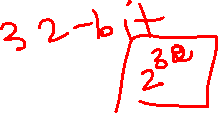 32-bit
2^32